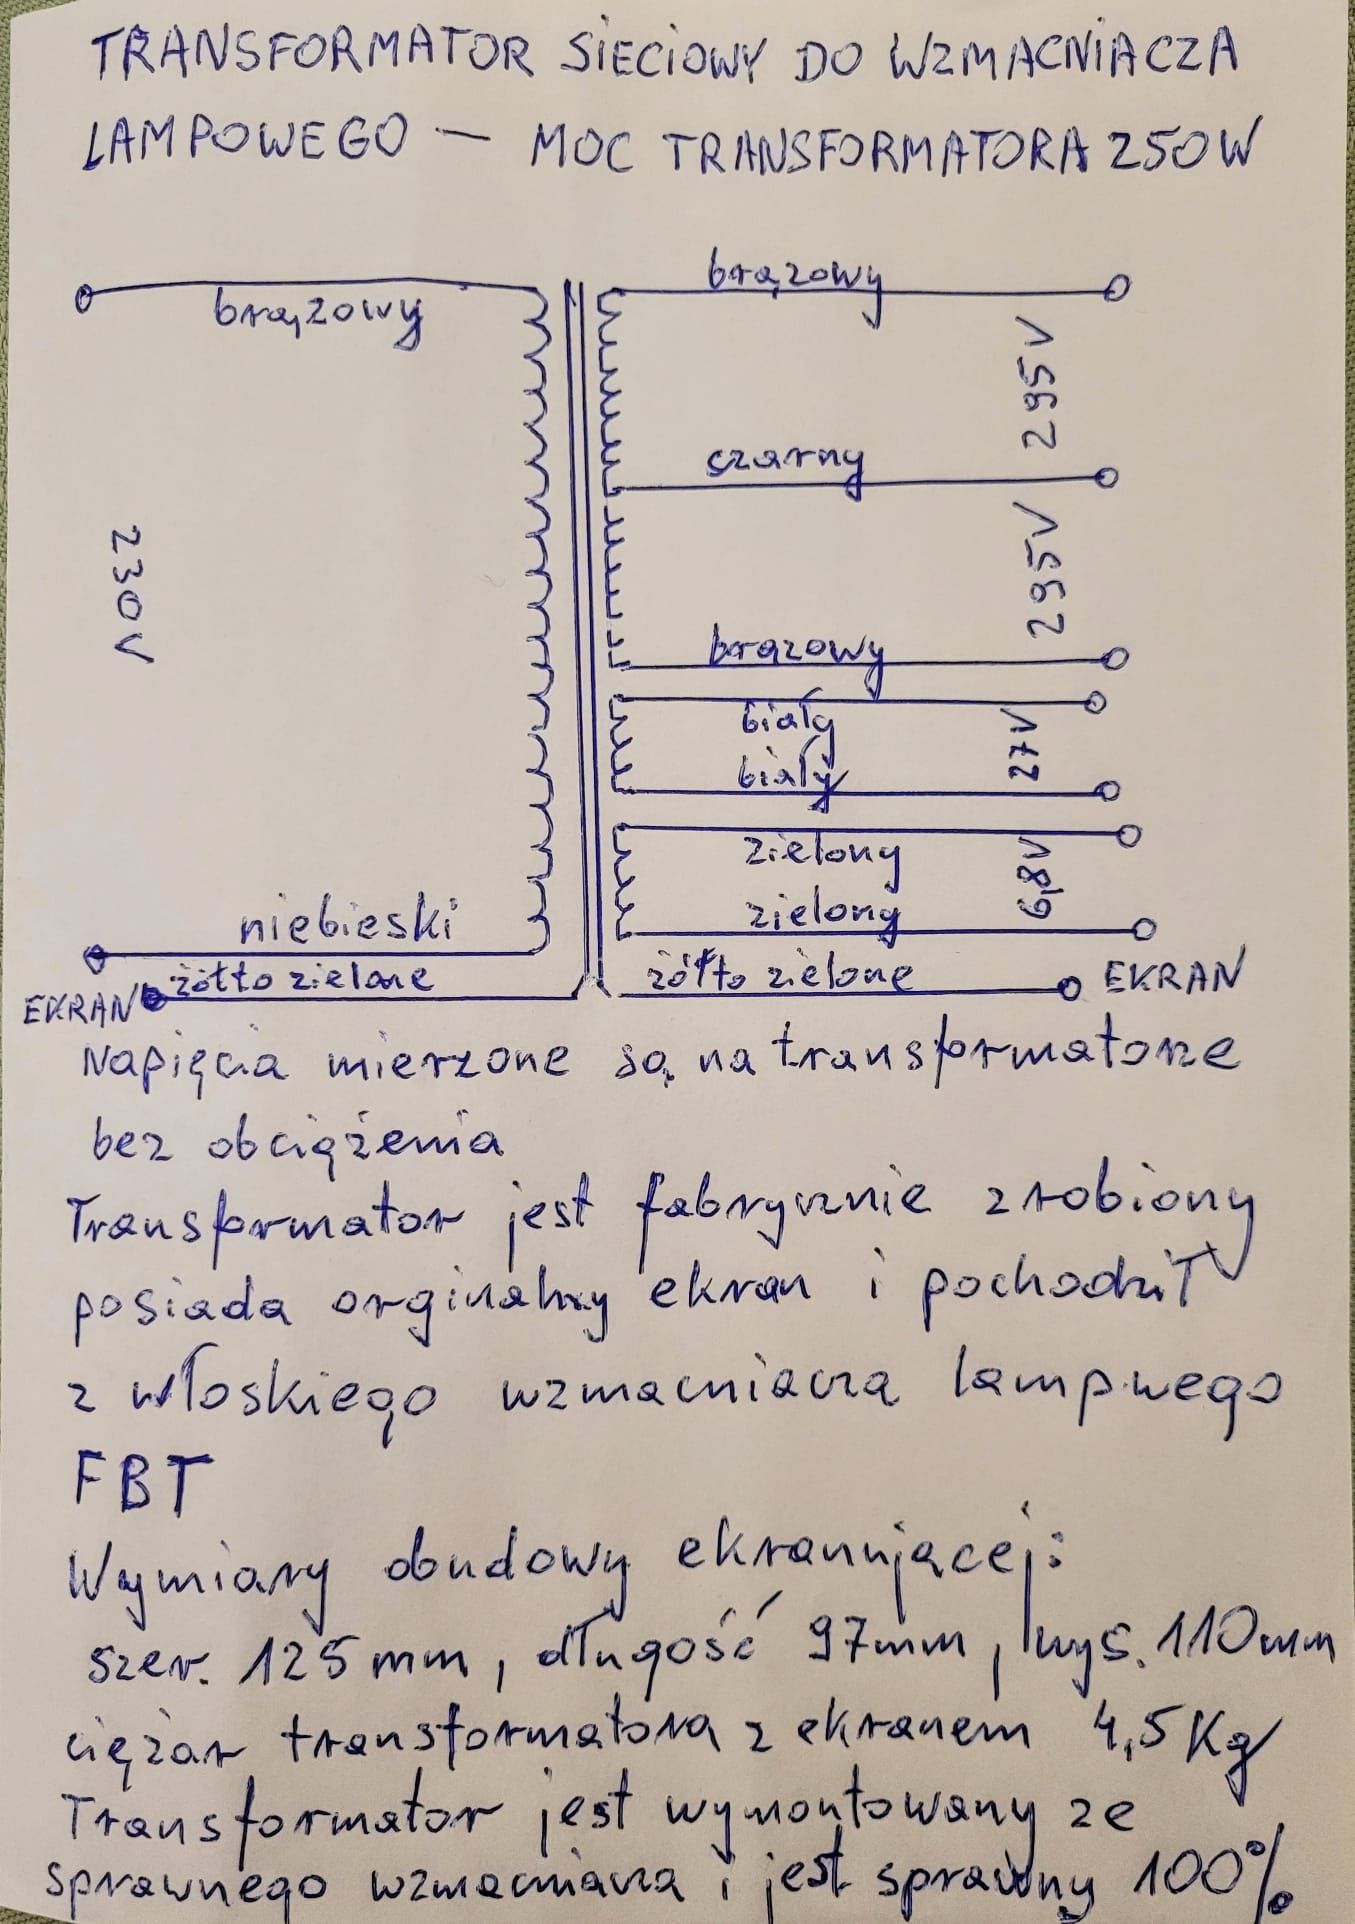 TRANSFORMATOR SIECIOWY DO WZMACNIACZA
LAMPOWEGO — MOC TRANSFORMATORA 250W
brązowy
brązowy
295V
czarny
230V
295V
brązowy
biały
27V
biały
zielony
6,8V
zielony
niebieski
żółto zielone
żółto zielone
EKRAN
EKRAN
Napięcia mierzone są na transformatorze
bez obciążenia
Transformator jest fabrycznie zrobiony
posiada orginalny ekran i pochodził
z włoskiego wzmacniacza lampwego
FBT
Wymiary obudowy ekranującej:
szer. 125mm, długość 97mm, wys. 110mm
ciężar transformatora z ekranem 4,5Kg
Transformator jest wymontowany ze
sprawnego wzmacniacza i jest sprawny 100%